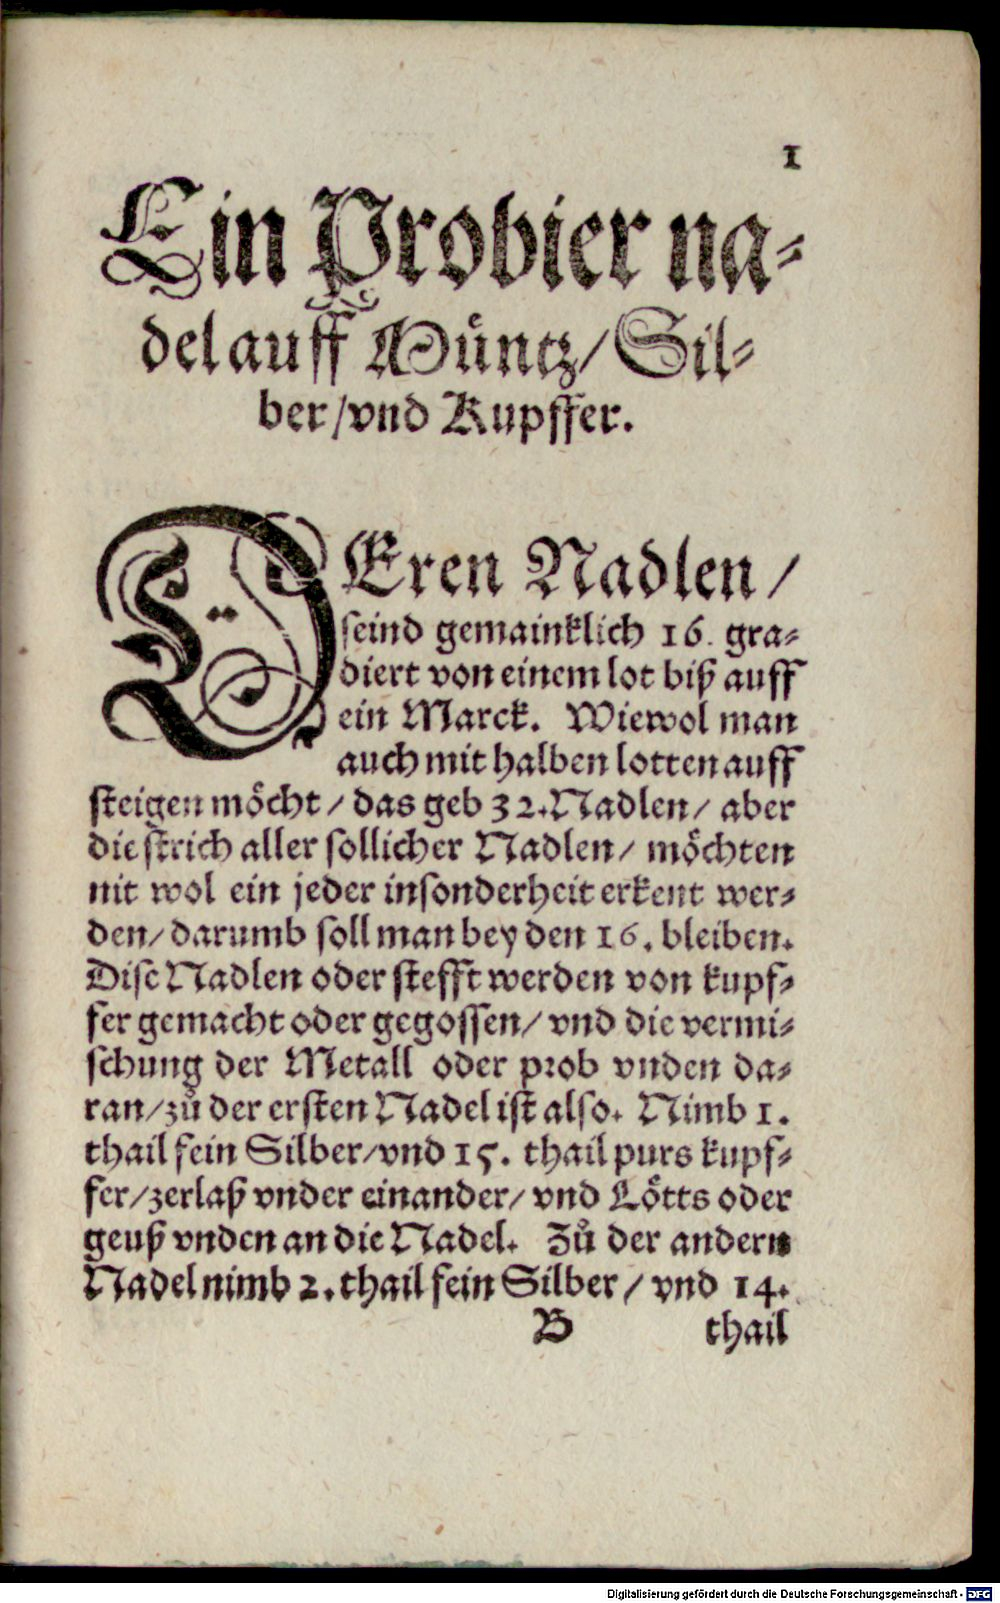 1
Ein Probier na-
del auff Müntz/ Sil-
ber/ vnd Kupffer.
DEren Nadlen/
seind gemainklich 16. gra-
diert von einem lot biß auff
ein Marck. Wiewol man
auch mit halben lotten auff
steigen möcht/ das geb 32. Nadlen/ aber
die strich aller sollicher Nadlen/ möchten
nit wol ein jeder insonderheit erkent wer-
den/ darumb soll man bey den 16. bleiben.
Dise Nadlen oder stefft werden von kupf-
fer gemacht oder gegossen/ vnd die vermi-
schung der Metall oder prob vnden da-
ran/ zů der ersten Nadel ist also. Nimb 1.
thail fein Silber/ vnd 15. thail purs kupf-
fer/ zerlaß vnder einander/ vnd Lötts oder
geuß vnden an die Nadel. Zů der andern
Nadel nimb 2. thail fein Silber/ vnd 14.
B thail
Digitalisierung gefördert durch die Deutsche Forschungsgemeinschaft - DFG